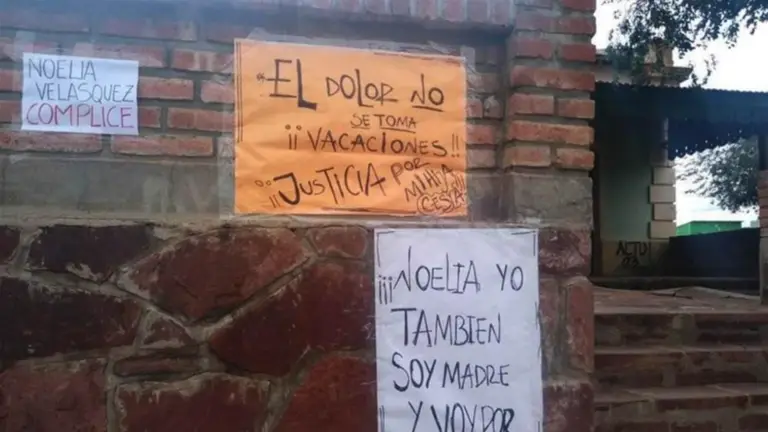 NOELIA
VELASQUEZ
COMPLICE
EL DOLOR NO
SE TOMA
¡¡VACACIONES!!
¡¡JUSTICIA POR
¡¡¡NOELIA YO
TAMBIEN
SOY MADRE
Y VOY POR